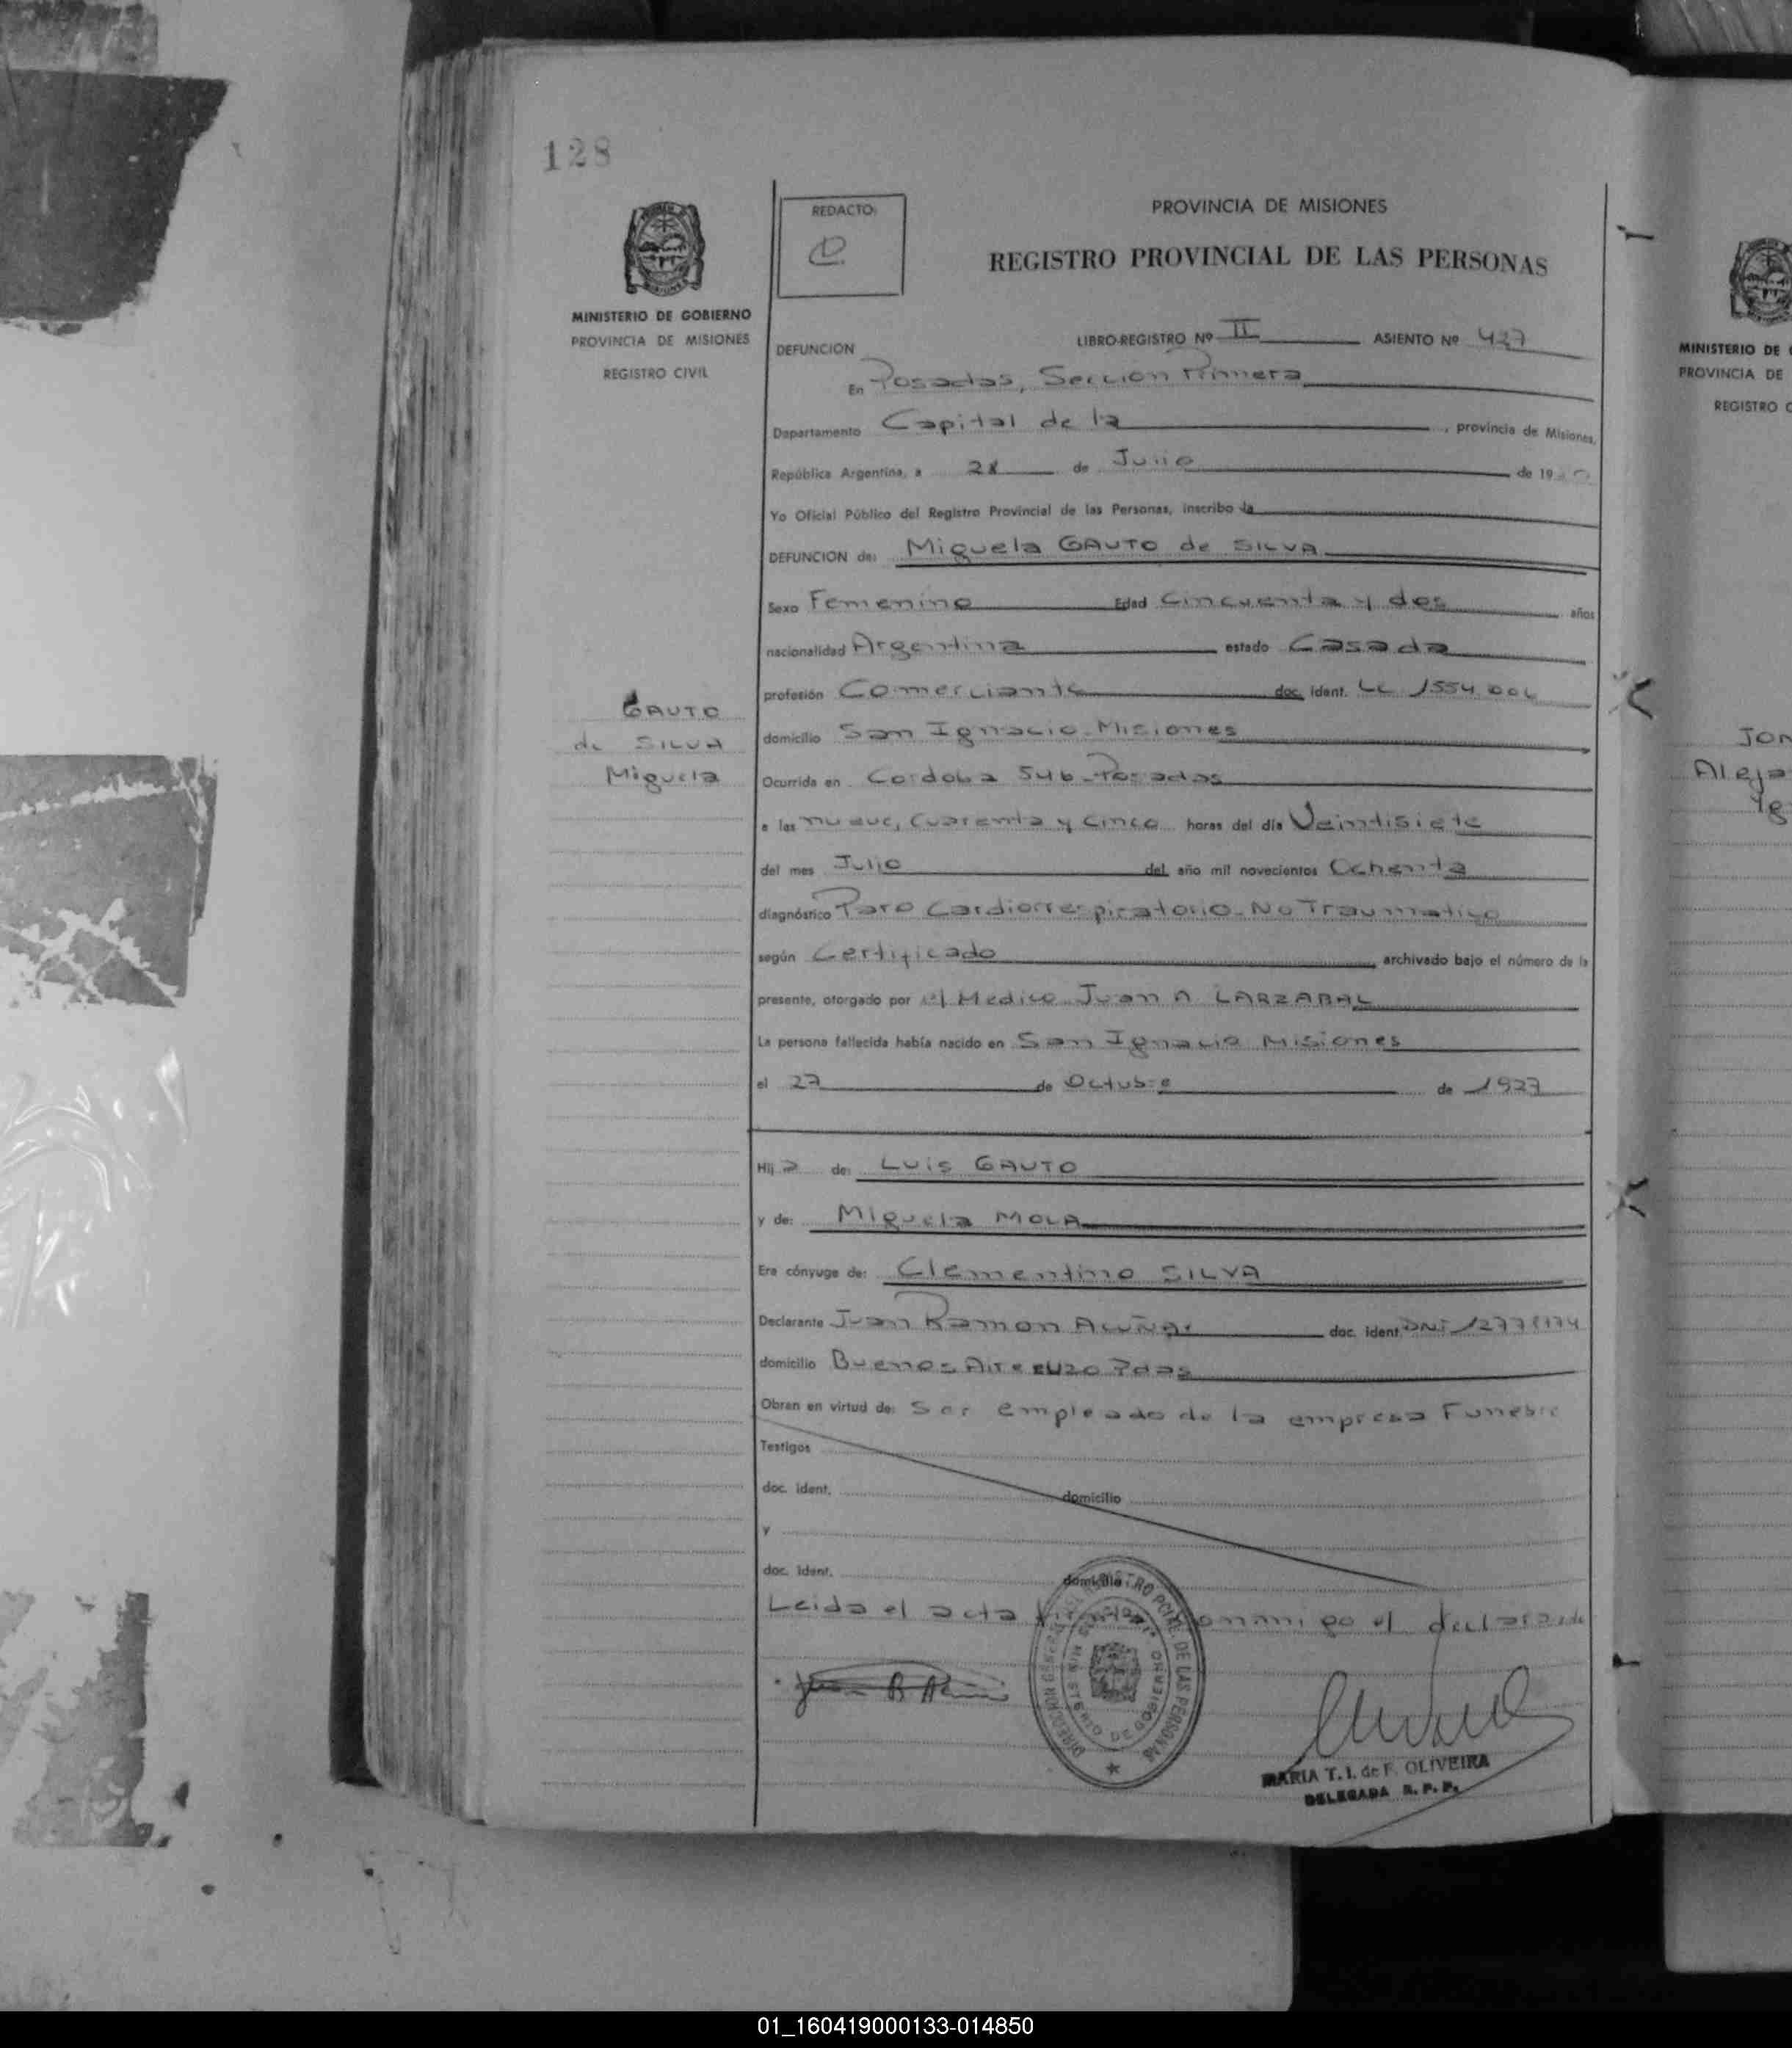 128
REDACTO:
PROVINCIA DE MISIONES
REGISTRO PROVINCIAL DE LAS PERSONAS
MINISTERIO DE GOBIERNO
PROVINCIA DE MISIONES
REGISTRO CIVIL
DEFUNCION
LIBRO-REGISTRO Nº II ASIENTO Nº 427
En Posadas, Seccion Primera
Departamento Capital de la, provincia de Misiones,
República Argentina, a 28 de Julio de 19
Yo Oficial Público del Registro Provincial de las Personas, inscribo la
DEFUNCION de: Miguela GAUTO de SILVA
Sexo Femenino Edad Cincuenta y dos años
nacionalidad Argentina estado Casada
profesión Comerciante doc. ident. LC 1554.006
GAUTO
de SILVA
Miguela
domicilio San Ignacio-Misiones
Ocurrida en Cordoba 546-Posadas
a las nueve, cuarenta y cinco horas del día Veintisiete
del mes Julio del año mil novecientos Ochenta
diagnóstico Paro Cardiorrespiratorio-No Traumatico
según Certificado archivado bajo el número de la
presente, otorgado por el Medico Juan A LARZABAL
La persona fallecida había nacido en San Ignacio Misiones
el 27 de Octubre de 1927
Hija de: Luis GAUTO
y de: Miguela MOLA
Era cónyuge de: Clementino SILVA
Declarante Juan Ramon Acuña doc. ident. DNI
domicilio Buenos Aires Pdas
Obran en virtud de: Ser empleado de la empresa Funebre
Testigos
doc. ident. domicilio
y
doc. ident. domicilio
Leida el acta conmigo el declarante
DIRECCION GENERAL DEL REGISTRO PCIAL. DE LAS PERSONAS
MINISTERIO DE GOBIERNO
MARIA T. I. de F. OLIVEIRA
DELEGADA R. P. P.
MINISTERIO DE
PROVINCIA DE
REGISTRO
01_160419000133-014850